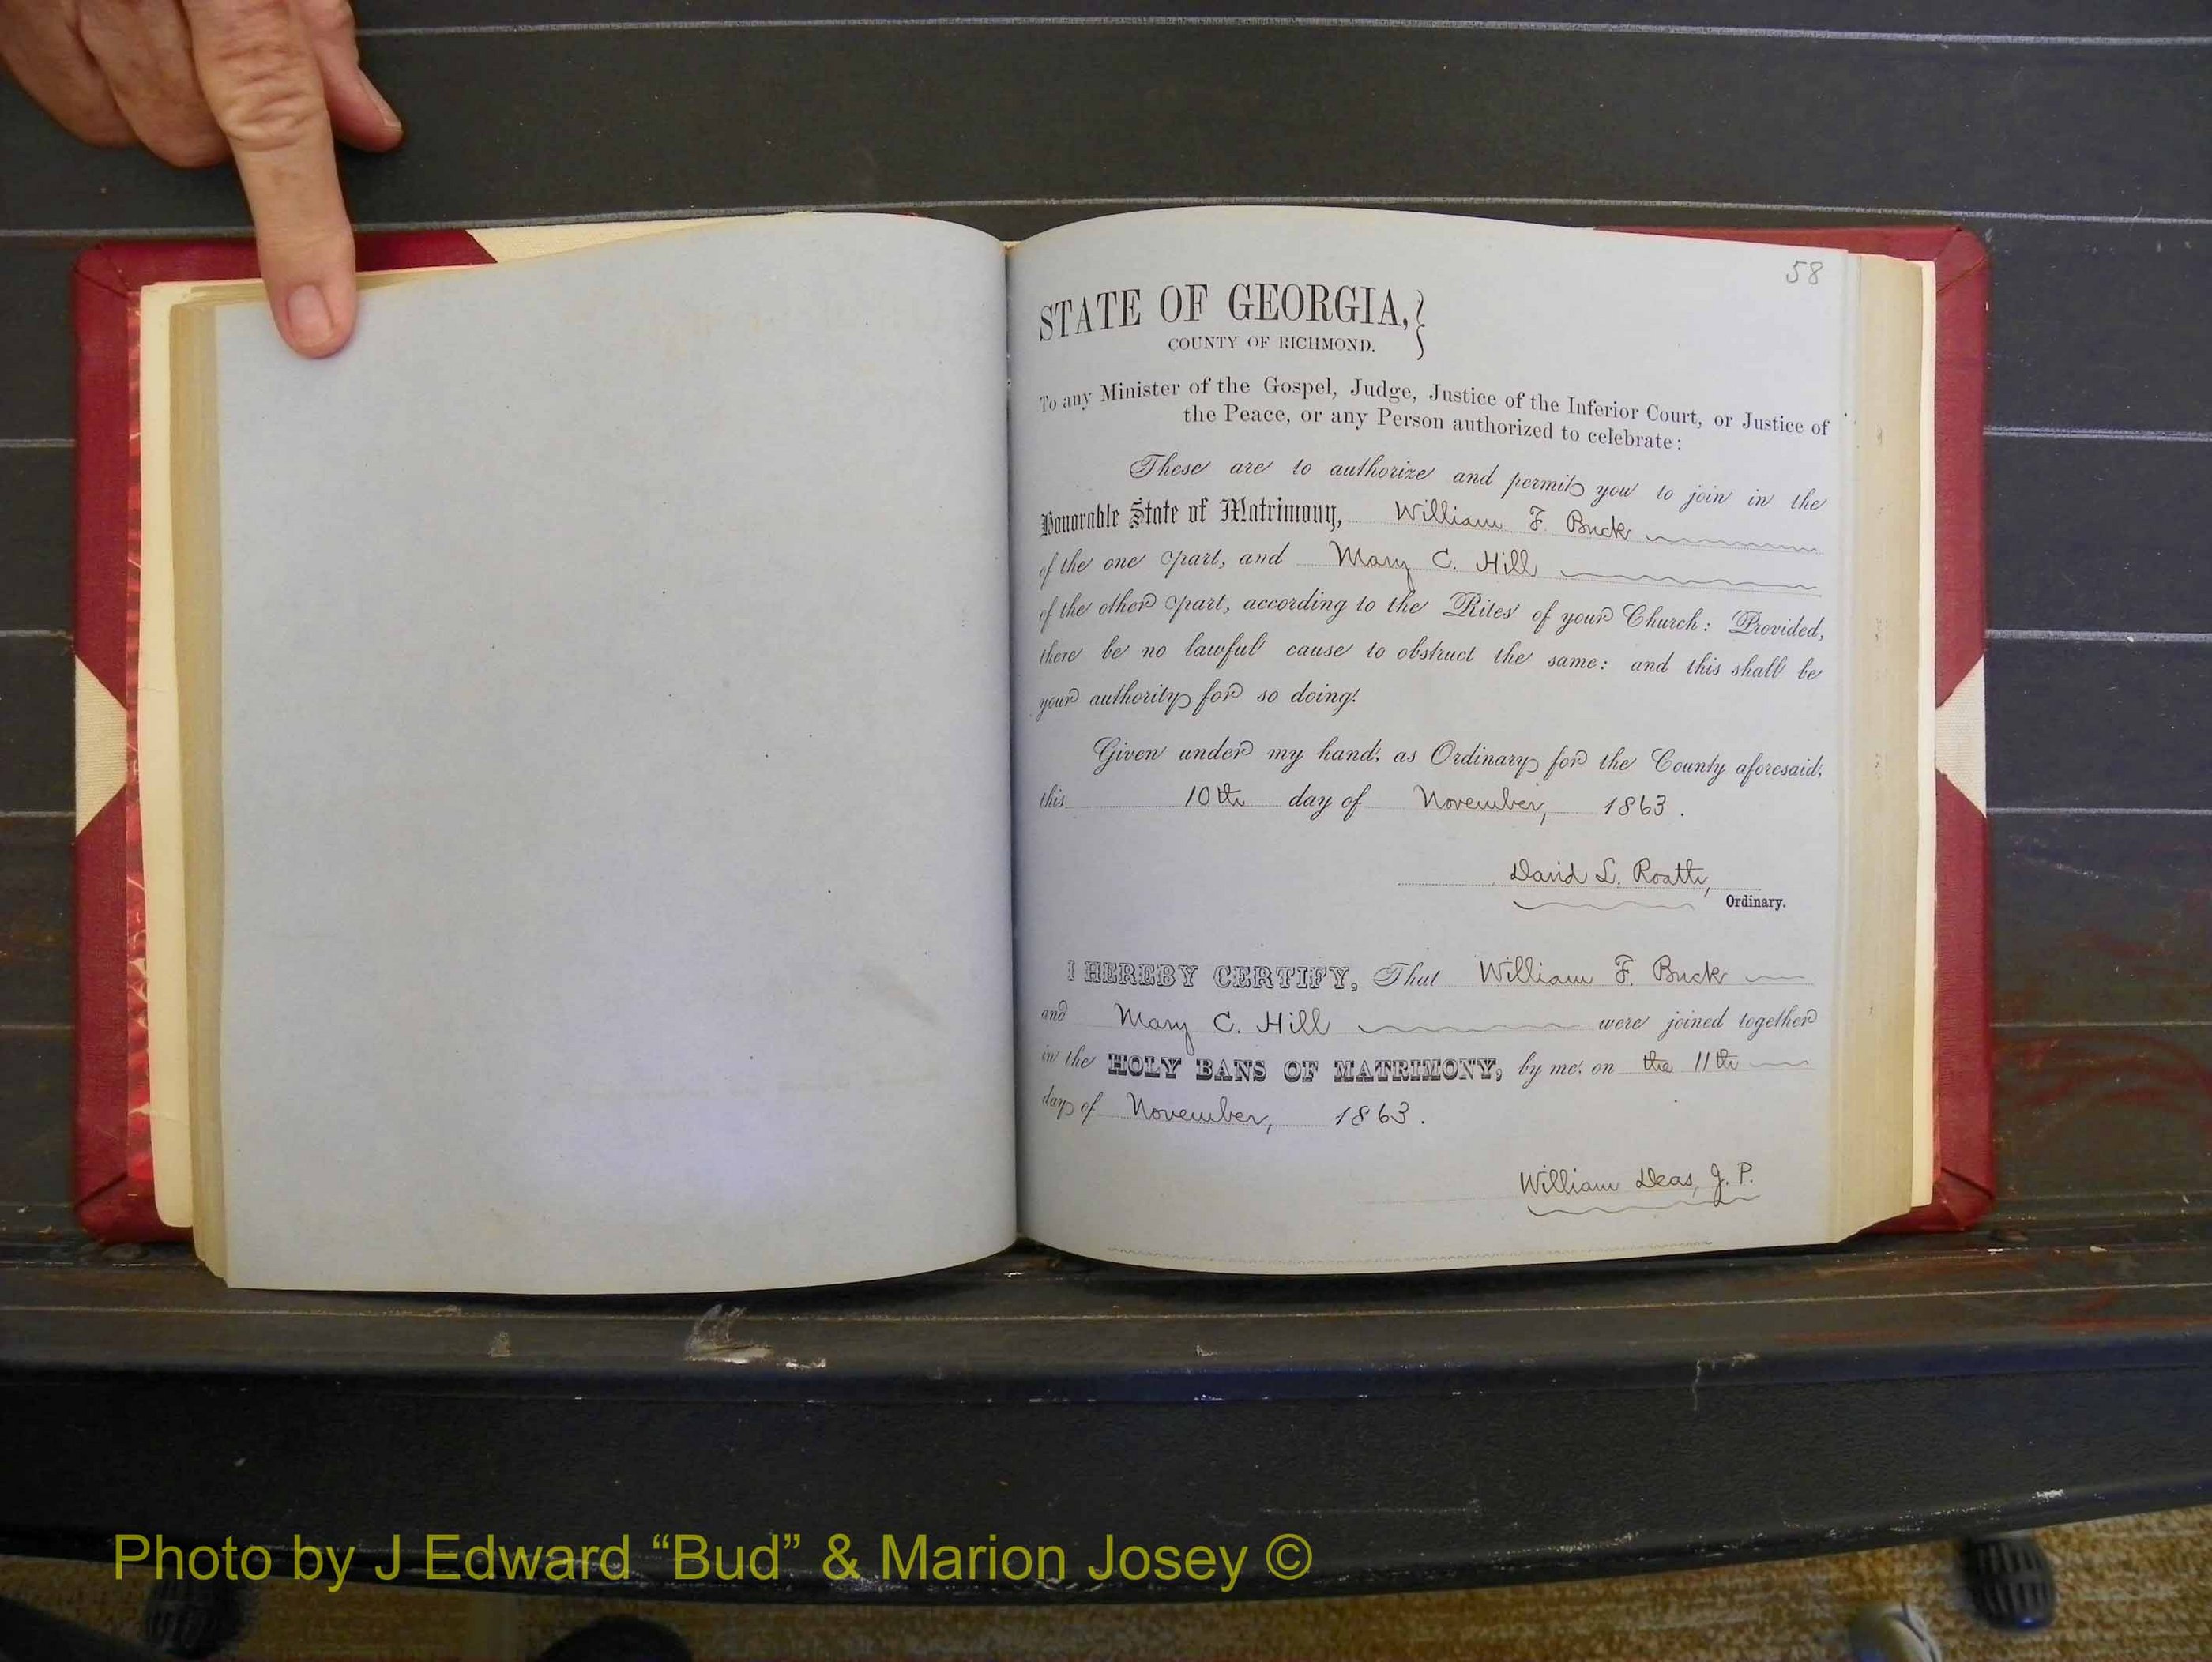 58
STATE OF GEORGIA,
COUNTY OF RICHMOND.
To any Minister of the Gospel, Judge, Justice of the Inferior Court, or Justice of
the Peace, or any Person authorized to celebrate:
These are to authorize and permit you to join in the
Honorable State of Matrimony, William F. Buck
of the one part, and Mary C. Hill
of the other part, according to the Rites of your Church: Provided,
there be no lawful cause to obstruct the same: and this shall be
your authority for so doing.
Given under my hand, as Ordinary for the County aforesaid,
this 10th day of November, 1863.
David L. Roath,
Ordinary.
I HEREBY CERTIFY, That William F. Buck
and Mary C. Hill were joined together
in the HOLY BANS OF MATRIMONY, by me, on the 11th
day of November, 1863.
William Deas, J. P.
Photo by J Edward “Bud” & Marion Josey ©